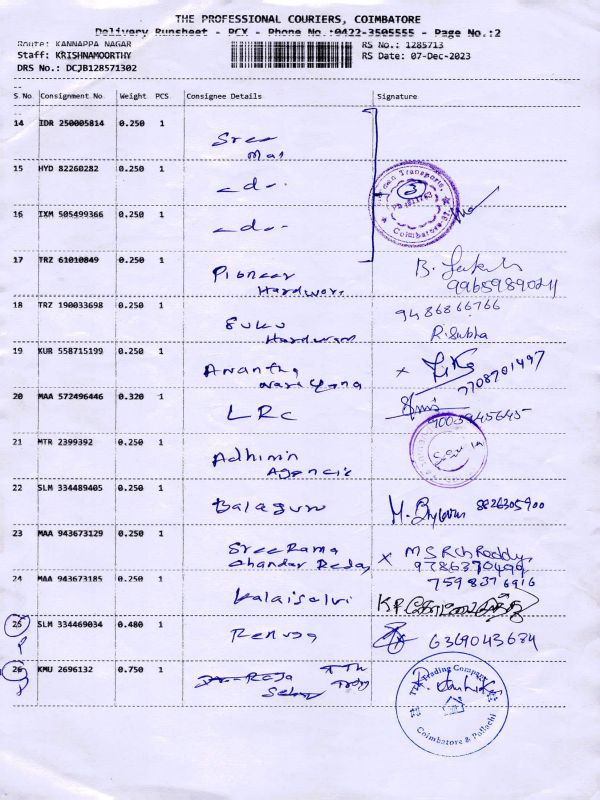 THE PROFESSIONAL COURIERS, COIMBATORE
Delivery Runsheet - PCX - Phone No.:0422-3505555 - Page No.:2
Route: KANNAPPA NAGAR RS No.: 1285713
Staff: KRISHNAMOORTHY RS Date: 07-Dec-2023
DRS No.: DCJB128571302
S.No Consignment No. Weight PCS Consignee Details Signature
14 IDR 250005814 0.250 1 Sree
Mai
15 HYD 82260282 0.250 1 -do-
16 IXM 505499366 0.250 1 -do-
3
Coimbatore-37
17 TRZ 61010849 0.250 1 Pioneer
Hardware
B.
18 TRZ 190033698 0.250 1 Suku
Hardware
9486866766
R. Subha
19 KUR 558715199 0.250 1 Anantha
x
7708701497
20 MAA 572496446 0.320 1 LRC
21 MTR 2399392 0.250 1 Adhimin
Agencie
22 SLM 334489405 0.250 1 Balaguru
M. 8826305900
23 MAA 943673129 0.250 1 Sree Rama
Chandar Reday
x MSRch Reddy
9786370499
7598376916
24 MAA 943673185 0.250 1 Kalaiselvi
KP
25 SLM 334469034 0.480 1 Renuga
P
6369043684
26 KMU 2696132 0.750 1
P
Trading Company
Coimbatore & Pollachi